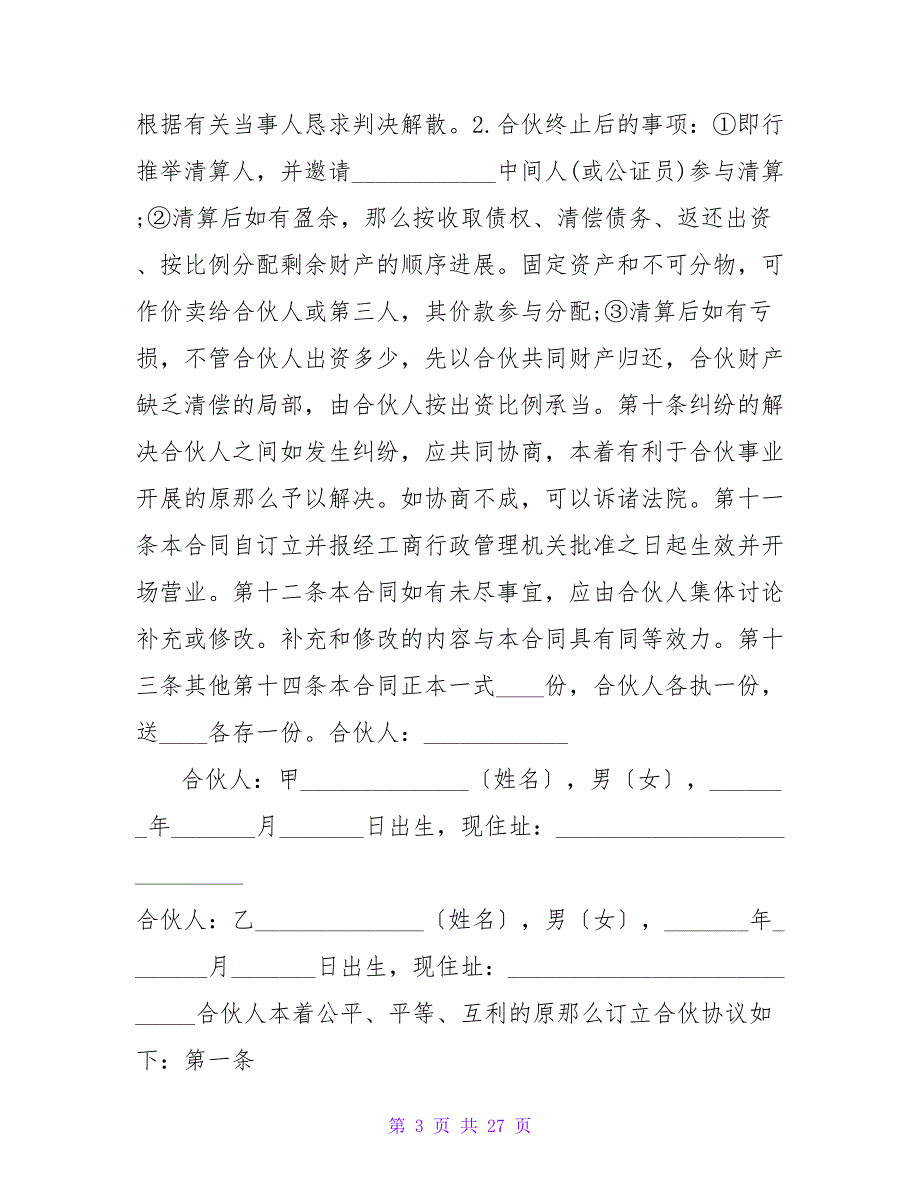 根据有关当事人恳求判决解散。2.合伙终止后的事项：①即行
推举清算人，并邀请____________中间人(或公证员)参与清算
;②清算后如有盈余，那么按收取债权、清偿债务、返还出资
、按比例分配剩余财产的顺序进展。固定资产和不可分物，可
作价卖给合伙人或第三人，其价款参与分配;③清算后如有亏
损，不管合伙人出资多少，先以合伙共同财产归还，合伙财产
缺乏清偿的局部，由合伙人按出资比例承当。第十条纠纷的解
决合伙人之间如发生纠纷，应共同协商，本着有利于合伙事业
开展的原那么予以解决。如协商不成，可以诉诸法院。第十一
条本合同自订立并报经工商行政管理机关批准之日起生效并开
场营业。第十二条本合同如有未尽事宜，应由合伙人集体讨论
补充或修改。补充和修改的内容与本合同具有同等效力。第十
三条其他第十四条本合同正本一式____份，合伙人各执一份，
送____各存一份。合伙人：____________
合伙人：甲______________〔姓名〕，男〔女〕，______
_年_______月_______日出生，现住址：___________________
_________
合伙人：乙______________〔姓名〕，男〔女〕，_______年_
______月_______日出生，现住址：_______________________
_____合伙人本着公平、平等、互利的原那么订立合伙协议如
下：第一条
第 3 页 共 27 页